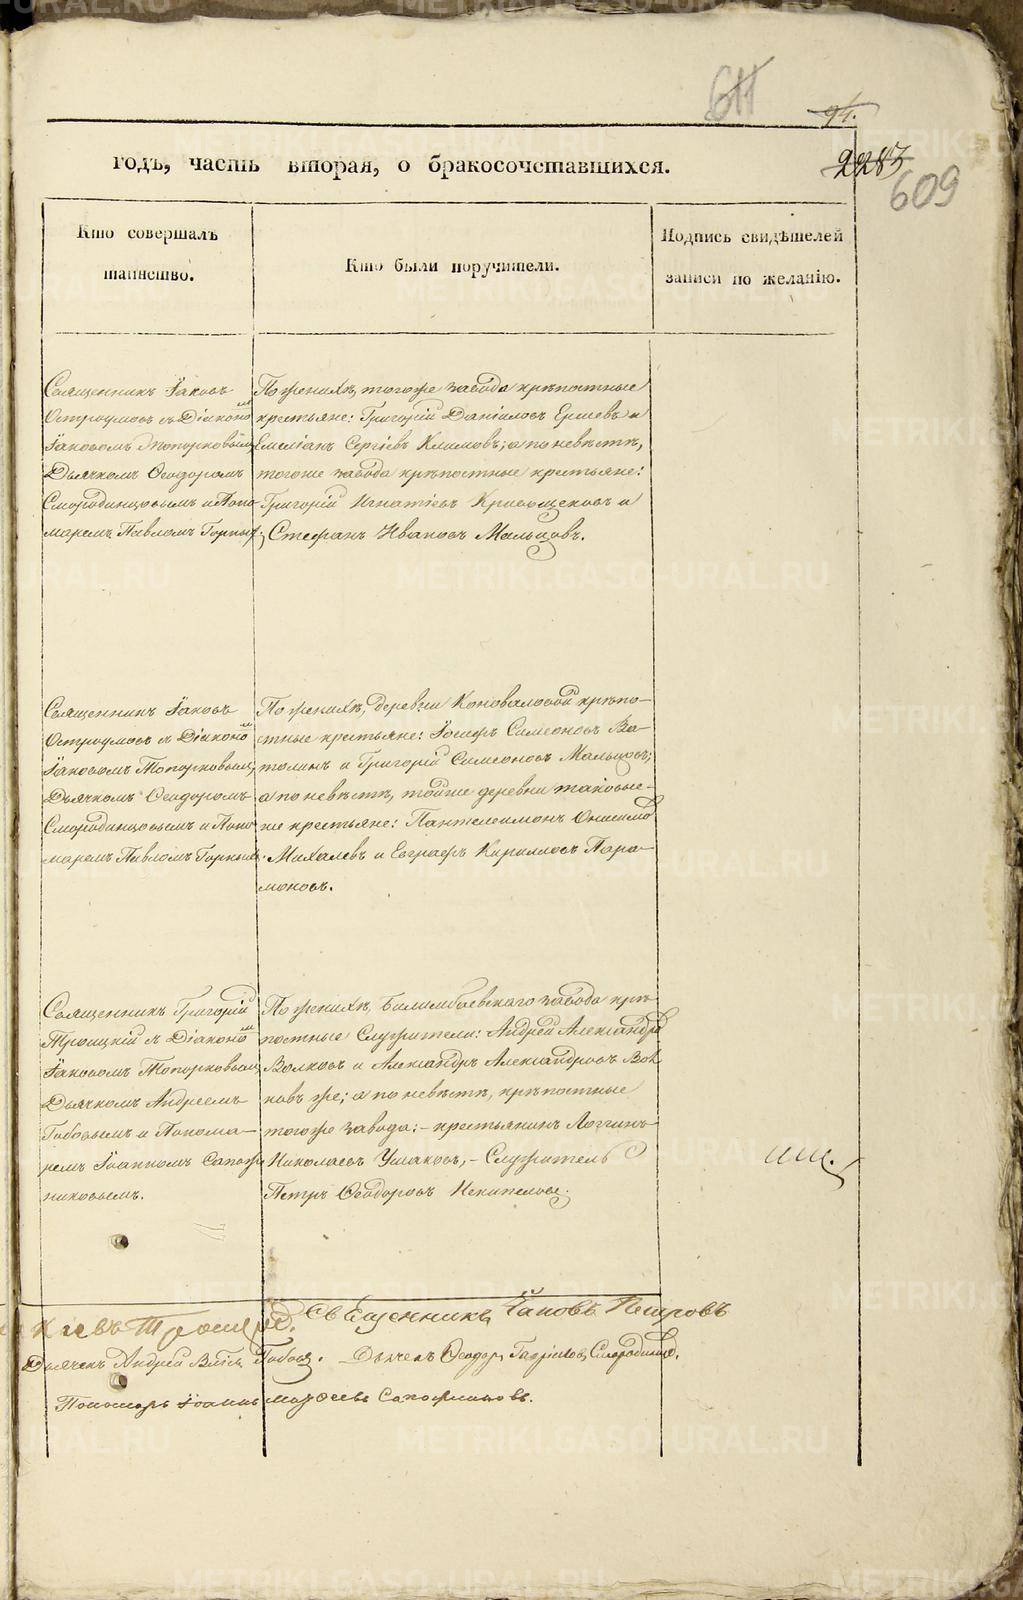 611
94.
годъ, часть вторая, о бракосочетавшихся.
2283
609
Кто совершалъ
таинство.
Кто были поручители.
Подпись свидѣтелей
записи по желанію.
Священникъ Іаковъ
Остроумовъ съ Діакономъ
Іаковомъ Топорковымъ,
Дьячкомъ Ѳеодоромъ
Смородинцовымъ и Поно-
маремъ Павломъ Горныхъ.
По женихѣ, тогоже завода крѣпостные
крестьяне: Григорій Даніиловъ Ершевъ и
Емеліанъ Сергіевъ Климовъ; а по невѣстѣ,
тогоже завода крѣпостные крестьяне:
Григорій Игнатіевъ Кривощековъ и
Стефанъ Ивановъ Мальцовъ.
Священникъ Іаковъ
Остроумовъ съ Діакономъ
Іаковомъ Топорковымъ,
Дьячкомъ Ѳеодоромъ
Смородинцовымъ и Поно-
маремъ Павломъ Горныхъ.
По женихѣ, деревни Коноваловой крѣпо-
стные крестьяне: Іосифъ Симеоновъ Ва-
толинъ и Григорій Симеоновъ Мальцовъ;
а по невѣстѣ, тойже деревни таковые-
же крестьяне: Пантелеимонъ Онисимовъ
Михалевъ и Евграфъ Кирилловъ Пара-
моновъ.
Священникъ Григорій
Троицкій съ Діакономъ
Іаковомъ Топорковымъ,
Дьячкомъ Андреемъ
Бабовымъ и Понома-
ремъ Іоанномъ Сапож-
никовымъ.
По женихѣ, Билимбаевскаго завода крѣ-
постные Служители: Андрей Александровъ
Волковъ и Александръ Александровъ Вол-
ковъ же; а по невѣстѣ, крѣпостные
тогоже завода: - крестьянинъ Логгинъ
Николаевъ Ушаковъ, - Служитель
Петръ Ѳеодоровъ Некипеловъ.
Священникъ Іаковъ Петровъ
Дьячекъ Андрей Бабовъ. Дьячекъ Ѳеодоръ Гавріиловъ Смородинцовъ.
Пономарь Іоаннъ Матѳеевъ Сапожниковъ.
METRIKI.GASO-URAL.RU